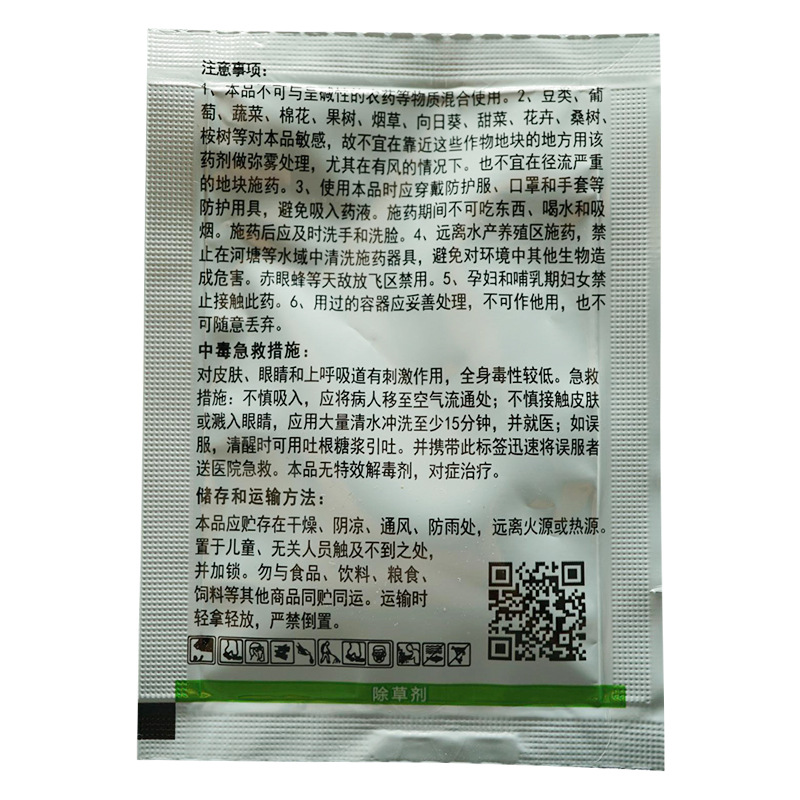 注意事项：
1、本品不可与呈碱性的农药等物质混合使用。2、豆类、葡
萄、蔬菜、棉花、果树、烟草、向日葵、甜菜、花卉、桑树、
桉树等对本品敏感，故不宜在靠近这些作物地块的地方用该
药剂做弥雾处理，尤其在有风的情况下。也不宜在径流严重
的地块施药。3、使用本品时应穿戴防护服、口罩和手套等
防护用具，避免吸入药液。施药期间不可吃东西、喝水和吸
烟。施药后应及时洗手和洗脸。4、远离水产养殖区施药，禁
止在河塘等水域中清洗施药器具，避免对环境中其他生物造
成危害。赤眼蜂等天敌放飞区禁用。5、孕妇和哺乳期妇女禁
止接触此药。6、用过的容器应妥善处理，不可作他用，也不
可随意丢弃。
中毒急救措施：
对皮肤、眼睛和上呼吸道有刺激作用，全身毒性较低。急救
措施：不慎吸入，应将病人移至空气流通处；不慎接触皮肤
或溅入眼睛，应用大量清水冲洗至少15分钟，并就医；如误
服，清醒时可用吐根糖浆引吐。并携带此标签迅速将误服者
送医院急救。本品无特效解毒剂，对症治疗。
储存和运输方法：
本品应贮存在干燥、阴凉、通风、防雨处，远离火源或热源。
置于儿童、无关人员触及不到之处，
并加锁。勿与食品、饮料、粮食、
饲料等其他商品同贮同运。运输时
轻拿轻放，严禁倒置。
除草剂